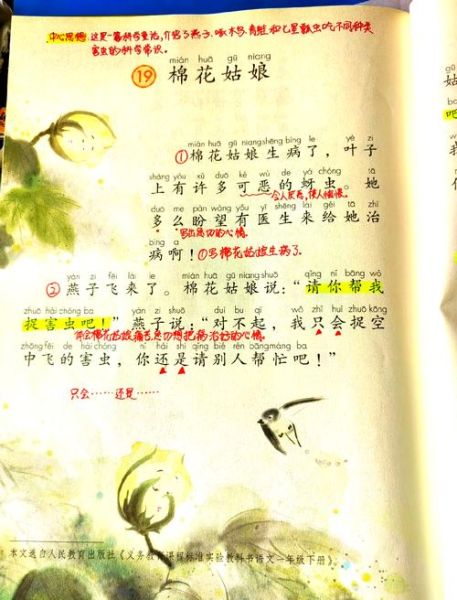 中心思想：这是一篇科学童话，介绍了燕子、啄木鸟、青蛙和七星瓢虫吃不同种类
害虫的科学常识。
mián huā gū niang
19 棉花姑娘
mián huā gū niang shēng bìng le yè zi
①棉花姑娘生病了，叶子
shàng yǒu xǔ duō kě wù de yá chóng tā
上有许多可恶的蚜虫。她
令人厌恶，使人恼恨。
duō me pàn wàng yǒu yī shēng lái gěi tā zhì
多么盼望有医生来给她治
写出急切的心情。
bìng a
病啊！①写棉花姑娘生病了。
yàn zi fēi lái le mián huā gū niang shuō qǐng nǐ bāng wǒ
②燕子飞来了。棉花姑娘说：“请你帮我
zhuō hài chóng ba yàn zi shuō duì bu qǐ wǒ zhǐ huì zhuō kōng
捉害虫吧！”燕子说：“对不起，我只会捉空
体会棉花姑娘痛苦急切想把病治好的心情。
zhōng fēi de hài chóng nǐ hái shì qǐng bié rén bāng máng ba
中飞的害虫，你还是请别人帮忙吧！”
只会……还是……
本文选自人民教育出版社《义务教育课程标准实验教科书语文一年级下册》。